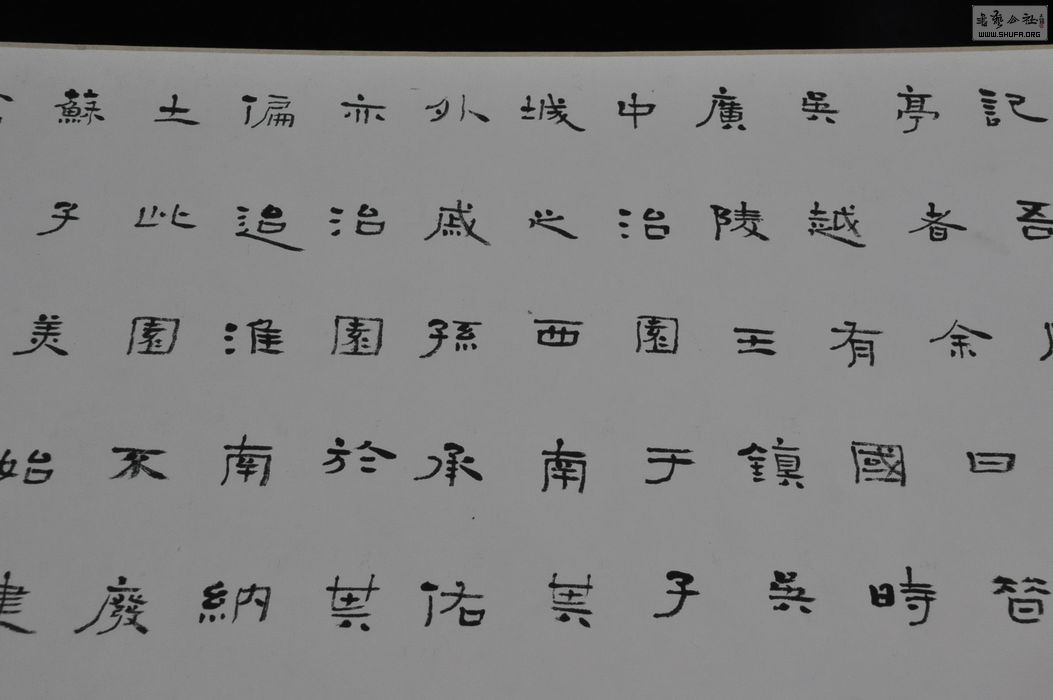 記吾
亭者余曰昔
吳越有國時
廣陵王鎮吳
中治園于子
城之西南其
外戚孫承佑
亦治園於其
偏迨淮南納
土此園不廢
蘇子美始建
書藝公社
WWW.SHUFA.ORG